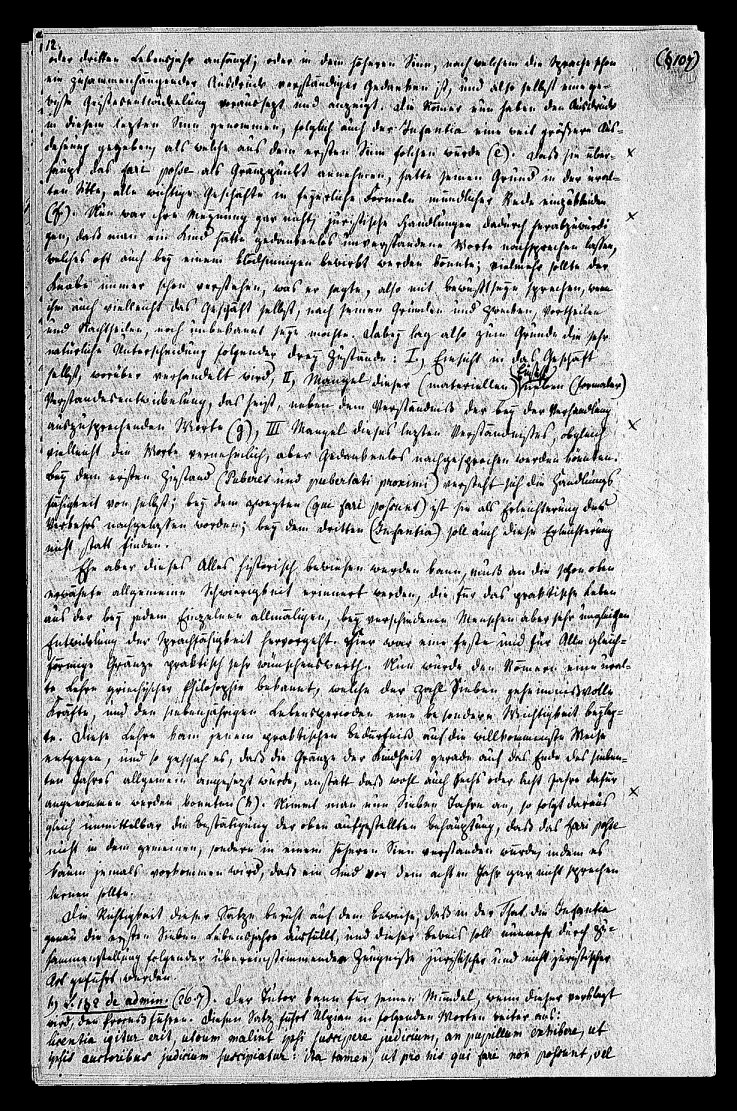 12.
(§107)
oder dritten Lebensjahr anfängt; oder in dem höheren Sinn, nach welchem die Sprache schon
ein zusammenhängender Ausdruck verständiger Gedanken ist, und also selbst eine ge-
wisse Geistesentwickelung voraussetzt und anzeigt. Die Römer nun haben den Ausdruck
in diesem lezten Sinn genommen, folglich auch der Infantia eine weit größere Aus-
dehnung gegeben, als welche aus dem ersten Sinn folgen würde (e). Daß sie über-
haupt das fari posse als Gränzpunkt annehmen, hatte seinen Grund in der ural-
ten Sitte, alle wichtige Geschäfte in feyerliche Formeln mündlicher Rede einzukleiden
(f). Nun war ihre Meynung gar nicht, juristische Handlungen dadurch herabzuwürdi
gen, daß man ein Kind hätte gedankenlos unverstandene Worte nachsprechen lassen,
welches oft auch bey einem blödsinnigen bewirkt werden könnte; vielmehr sollte der
Knabe immer schon verstehen, was er sagte, also mit Bewußtseyn sprechen, wenn
ihm auch vielleicht das Geschäft selbst, nach seinen Gründen und Zwecken, Vortheilen
und Nachtheilen, noch unbekannt seyn mochte. Dabey lag also zum Grunde die sehr
natürliche Unterscheidung folgender drey Zustände: I, Einsicht in das Geschäft
selbst, worüber verhandelt wird, II, Mangel dieser (materiellen) Einsicht neben (formaler)
Verstandesentwickelung, das heißt, neben dem Verständniß der bey der Verhandlung
auszusprechenden Worte (g), III Mangel dieses lezten Verständnisses, obgleich
vielleicht die Worte vernehmlich, aber gedankenlos nachgesprochen werden könnten.
Bey dem ersten Zustand (Puberes und pubertati proximi) versteht sich die Handlungs
fähigkeit von selbst; bey dem zweyten (qui fari possunt) ist sie als Erleichterung des
Verkehrs nachgelassen worden; bey dem dritten (Infantia) soll auch diese Erleichterung
nicht statt finden.
Ehe aber dieses Alles historisch bewiesen werden kann, muß an die schon oben
erwähnte allgemeine Schwierigkeit erinnert werden, die für das praktische Leben
aus der bey jedem Einzelnen allmäligen, bey verschiedenen Menschen aber sehr ungleichen
Entwicklung der Sprachfähigkeit hervorgeht. Hier war eine feste und für Alle gleich-
förmige Gränze praktisch sehr wünschenswerth. Nun wurde den Römern eine ural-
te Lehre griechischer Philosophie bekannt, welche der Zahl Sieben geheimnißvolle
Kräfte, und den siebenjährigen Lebensperioden eine besondere Wichtigkeit beyleg-
te. Diese Lehre kam jenem praktischen Bedürfniß auf die willkommenste Weise
entgegen, und so geschah es, daß die Gränze der Kindheit gerade auf das Ende des sieben-
ten Jahres allgemein angesezt wurde, anstatt daß wohl auch sechs oder acht Jahre dafür
angenommen werden konnten (h). Nimmt man nun Sieben Jahre an, so folgt daraus
gleich unmittelbar die Bestätigung der oben aufgestellten Behauptung, daß das fari posse
nicht in dem gemeinen, sondern in einem höheren Sinn verstanden wurde, indem es
kaum jemals vorkommen wird, daß ein Kind vor dem achten Jahr gar nicht sprechen
lernen sollte.
Die Richtigkeit dieser Sätze beruht auf dem Beweise, daß in der That die Infantia
genau die ersten Sieben Lebensjahre ausfüllt, und dieser Beweis soll nunmehr durch Zu-
sammenstellung folgender übereinstimmender Zeugnisse juristischer und nicht juristischer
Art geführt werden.
L. 1 § 2 de admin. (26.7). Der Tutor kann für seinen Mündel, wenn dieser verklagt
wird, den Prozeß führen. Diesen Satz führt Ulpian in folgenden Worten weiter aus:
licentia igitur erit, utrum malint ipsi suscipere judicium, an pupillum exhibere, ut
ipsis auctoribus judicium suscipiatur: ita tamen, ut pro his qui fari non possunt, vel